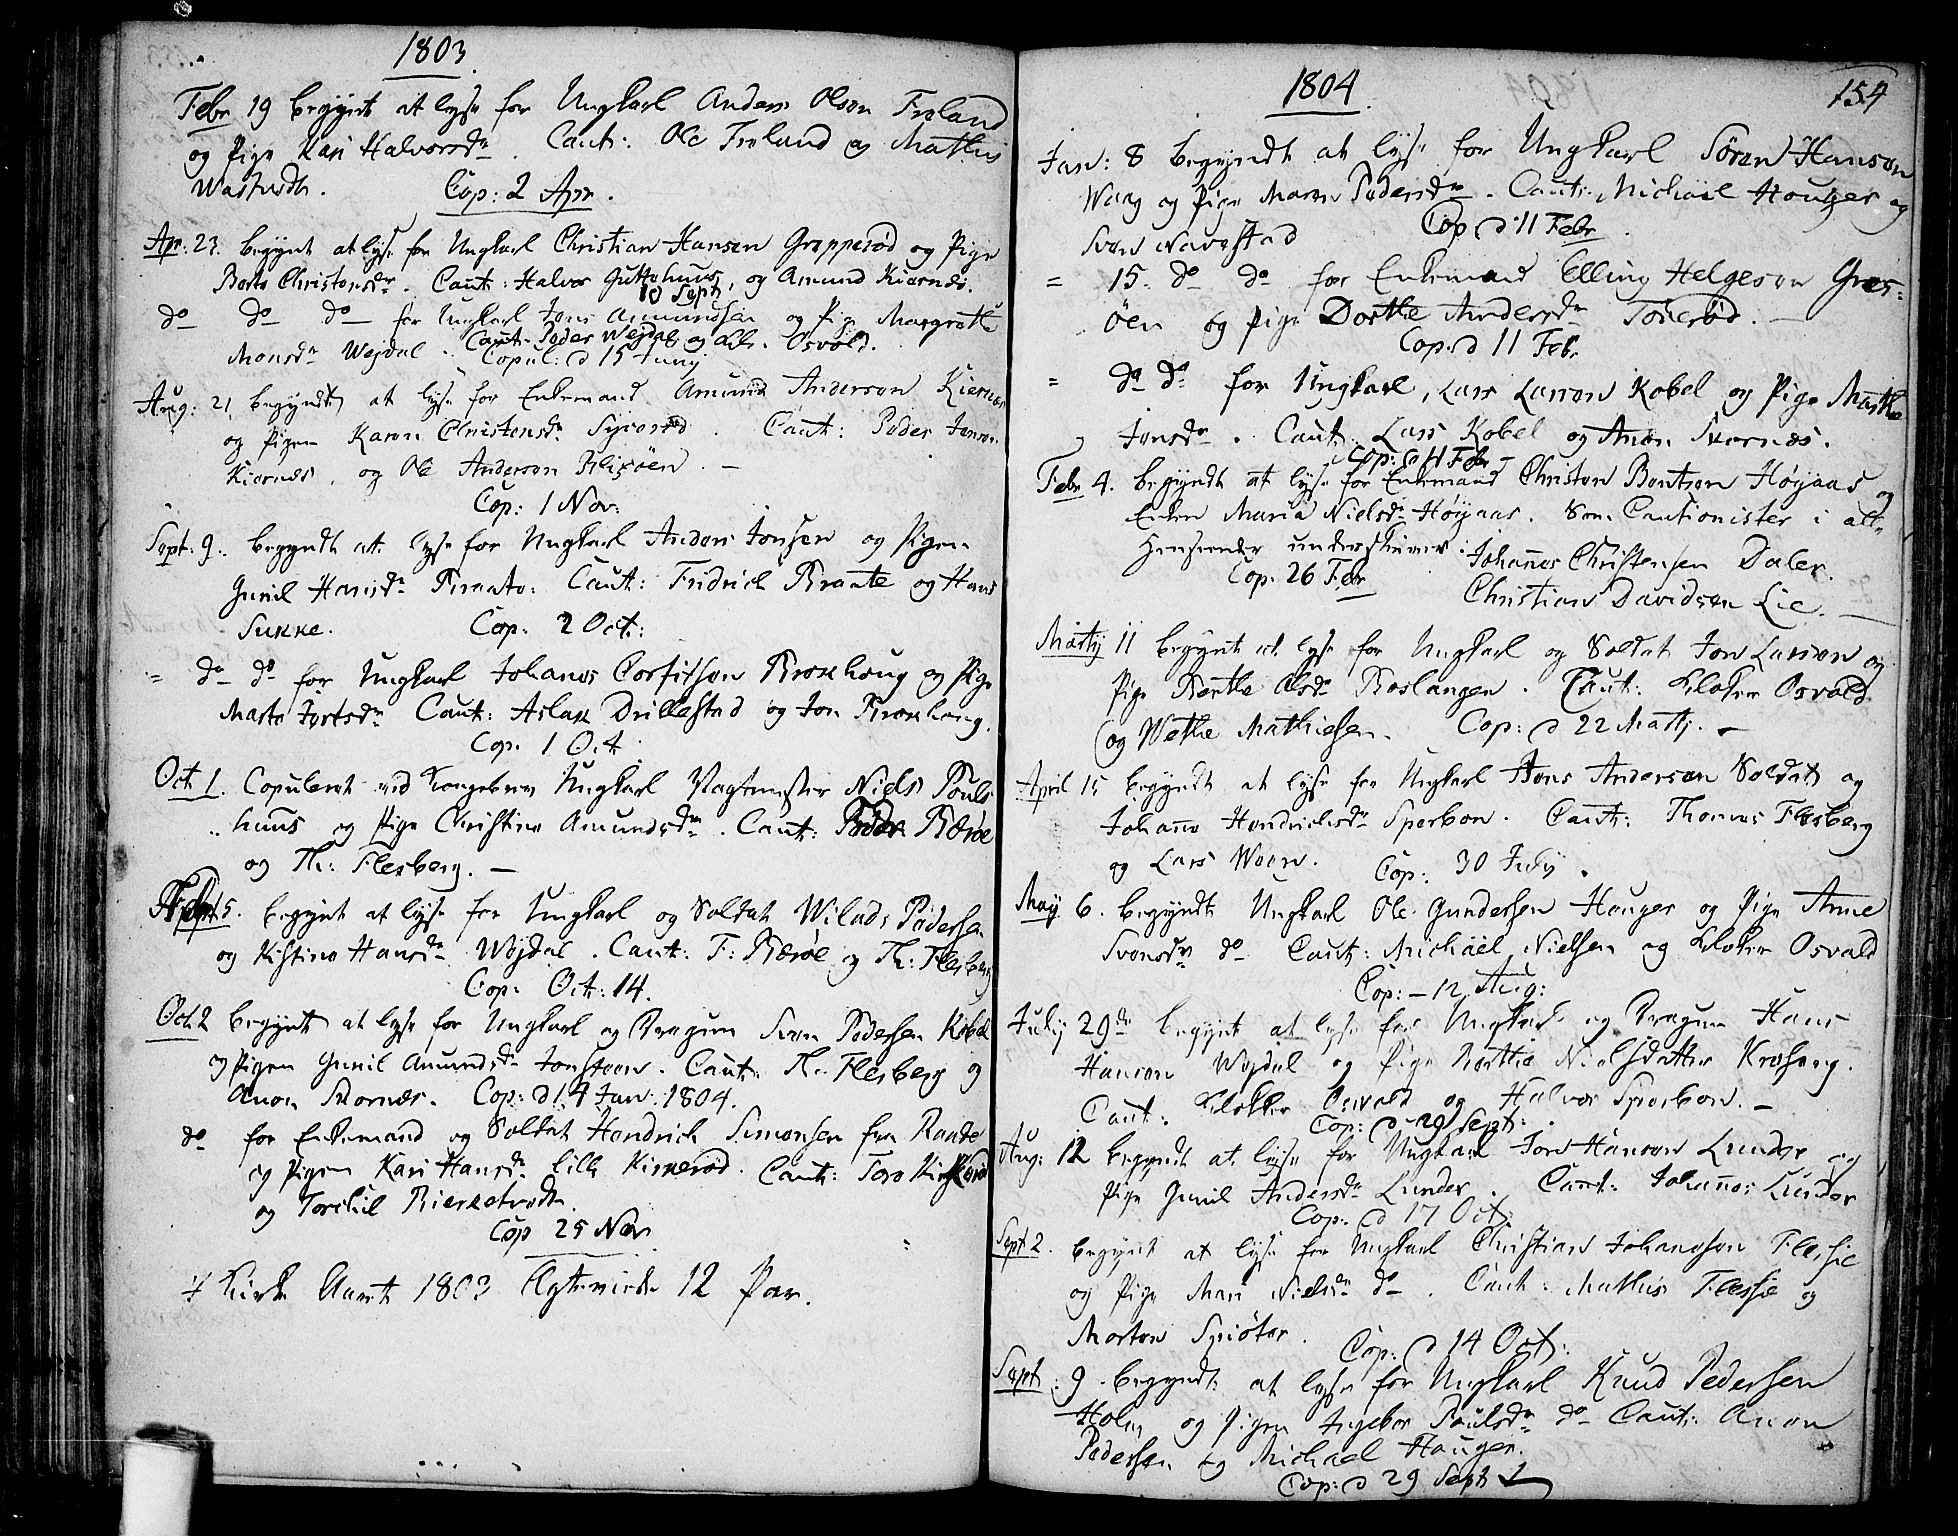 1803.
Febr 19 begynt at lyse for Ungkarl Anders Olsen Froland
og Pige Kari Halvorsdr. Caut: Ole Froland og Mathis
Cop: 2 Apr.
Apr: 23. begynt at lyse for Ungkarl Christian Hansen Grepperød og Pige
Berte Christensdr. Caut: Halvor Guttehuus, og Amund Kiernæs.
10 Sept
do do do for Ungkarl Jens Amundsen og Pige Margrethe
Monsdr Wejdal. Caut: Peder Wejdal og Osvold.
Copul: d 15 Junij
Aug: 21, begyndt at lyse for Enkemand Amund Anderson Kiernæs
og Pigen Karen Christensdr. Caut: Peder Jensen
Kiernæs, og Ole Anderson
Cop: 1 Nov:
Sept: 9. begyndt at lyse for Ungkarl Anders Jonsen og Pigen
Gunil Hansdr Braate. Caut: Fridrich Braate og Hans
Sukke. Cop. 2 Oct:
= do do for Ungkarl Johanes Corfitsen Brekhoug og Pige
Marte Caut: Aslak Drillestad og Jon Brekhoug.
Cop. 1 Oct
Oct 1. Copuleret ved Kongebrev Ungkarl Vagtmester Niels Pouls
huus og Pige Christine Amundsdr. Caut: Bærøe
og Th: Flesberg. —
Sept 5. begynt at lyse for Ungkarl og Soldat Wilads Pedersen
og Kistine Hansdr Wejdal. Caut: F: Bærøe og Th: Flesberg
Cop. Oct: 14.
Oct 2 begynt at lyse for Ungkarl og Dragun Sven Pedersen Kobel
og Pigen Gunil Amundsdr Jonsteen. Caut: Th: Flesberg og
Anon Skornæs. Cop: d 4 Jan: 1804.
do for Enkemand og Soldat Hendrich Simonsen fra Raade
og Pigen Kari Hansdr Lille Kirkerød. Caut: Tore Kirkerød
og Torchil
Cop 25 Nov
Kirke Aaret 1803 Ægteviede 12 Par.
1804.
154
Jan: 8 begyndt at lyse for Ungkarl Søren Hansen
Waag og Pige Maren Pedersdr. Caut: Michäel Houger og
Sven Navestad Cop d 11 Febr.
= 15. do do for Enkemand Elling Helgeson Græs:
öen og Pige Dorthe Andersdr Tönerød. —
Cop. d 11 Febr
= do do for Ungkarl, Lars Larson Kobel og Pige Marthe
Jonsdr. Caut: Lars Kobel og Anon Skornæs.
Cop: d 11 Febr
Febr 4. begyndt at lyse for Enkemand Christen Bentsen Høyaas og
Enken Maria Nielsdr Høyaas. Som Cautionister i alle
Henseender underskriver: Johanes Christensen Daler.
Cop. 26 Febr
Christian Davidsen Lie. —
Martij 11 begynt at lyse for Ungkarl og Soldat Jon Larson og
Pige Berthe Olsdr Boslangen. Caut: Kloker Osvold
og Wethe Mathiesen. Cop: d 22 Martj. —
April 15 begyndt at lyse for Ungkarl Hans Anderson Soldat og
Johanne Hendrichsdr Sperbon. Caut: Thomas Flesberg
og Lars Woen. Cop: 30 July.
Maij 6. begyndt Ungkarl Ole Gundersen Houger og Pige Anne
Svensdr do Caut: Michäel Nielsen og Kloker Osvald
Cop: — 12 Aug:
Julij 29de begynt at lyse for Ungkarl og Dragun Hans
Hanson Wejdal og Pige Berthe Nielsdatter Krosberg.
Caut: Klokker Osvald og Halvor Sperbon. —
Cop: d 29 Sept:
Aug: 12 begyndt at lyse for Ungkarl Jon Hanson Lunder og
Pige Gunil Andersdr Lunder. Caut: Johanes Lunder
Cop: d 17 Oct.
Sept 2. begynt at lyse for Ungkarl Christian Johanson Flessie
og Pige Mari Nielsdr do. Caut: Mathis Flessie og
Morten Spiøter. Cop: d 14 Oct:
Sept: 9. begyndt at lyse for Ungkarl Knud Pedersen
Holm og Pigen Ingebor Poulsdr do Caut: Anon
Pedersen og Michael Houger.
Cop: d 29 Sept